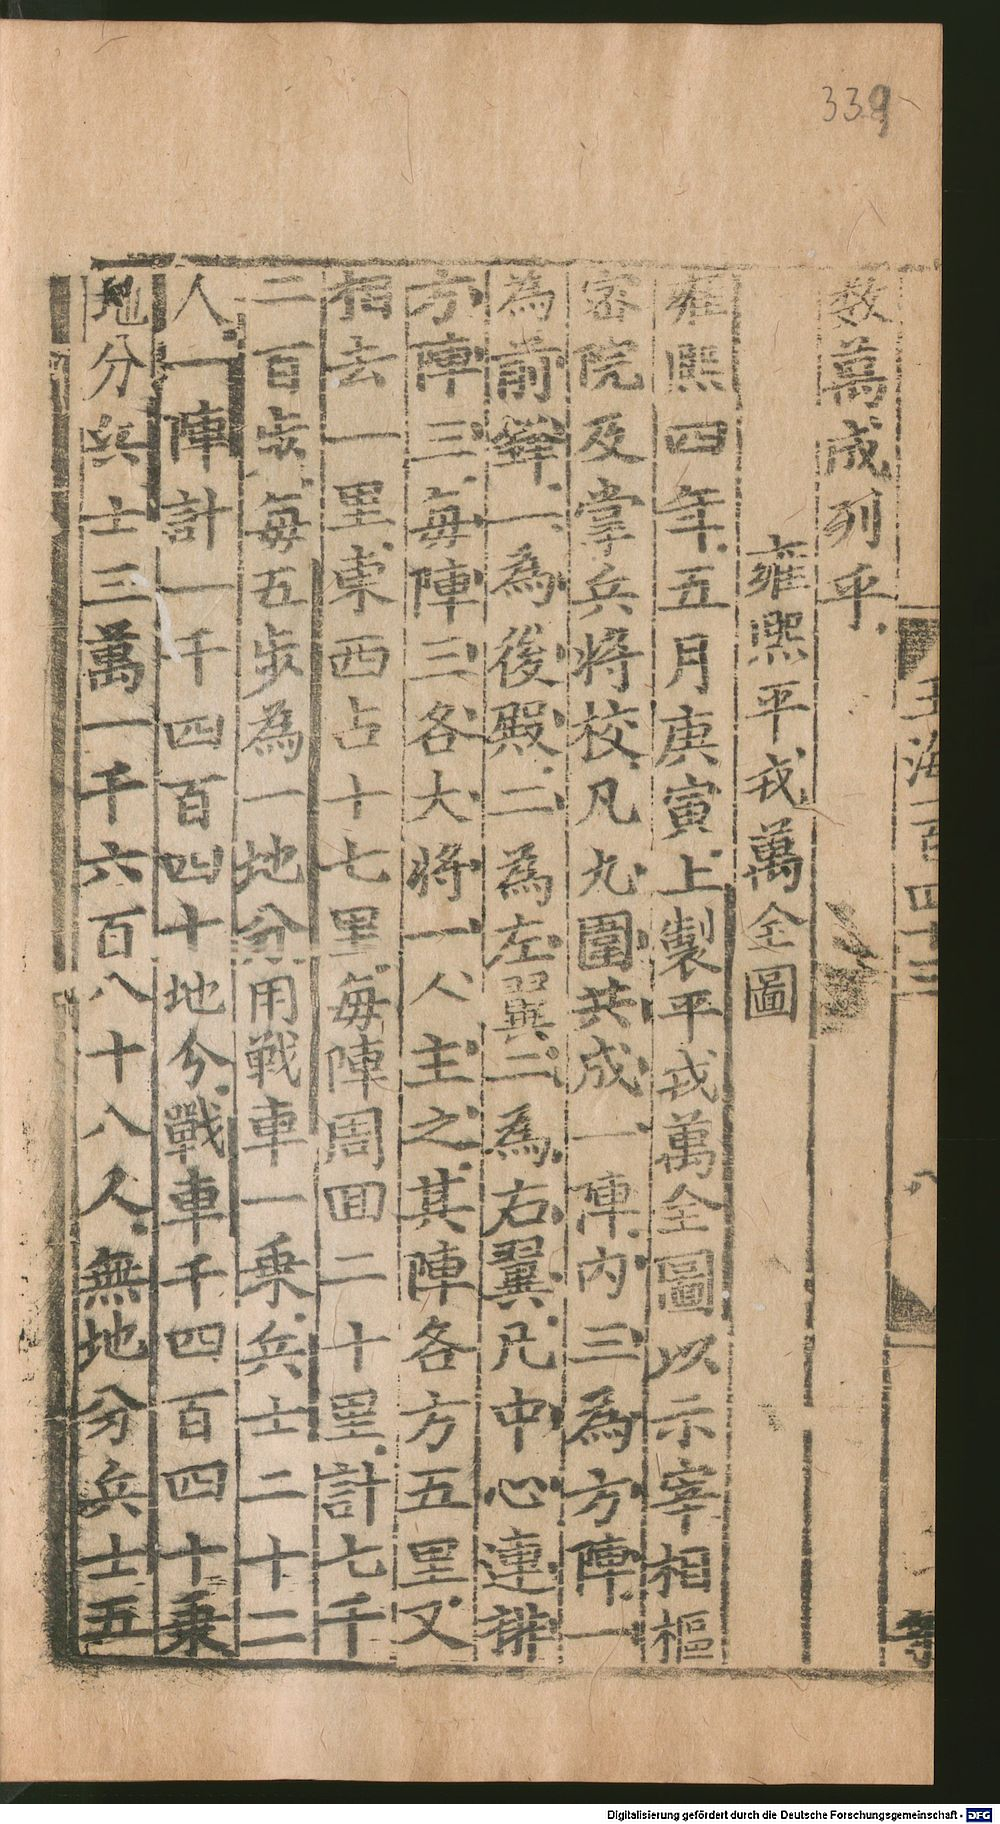 339
玉海一百四十三
八
数萬成列乎
雍熙平戎萬全圖
雍熙四年五月庚寅上製平戎萬全圖以示宰相樞
密院及掌兵將校凡九圍共成一陣内三為方陣一
為前鋒一為後殿二為左翼二為右翼凡中心連排
方陣三每陣三各大將一人主之其陣各方五里又
相去一里東西占十七里每陣周囬二十里計七千
二百步每五步為一地分用戰車一乗兵士二十二
人一陣計一千四百四十地分戰車千四百四十乗
地分兵士三萬一千六百八十八人無地分兵士五
Digitalisierung gefördert durch die Deutsche Forschungsgemeinschaft - DFG